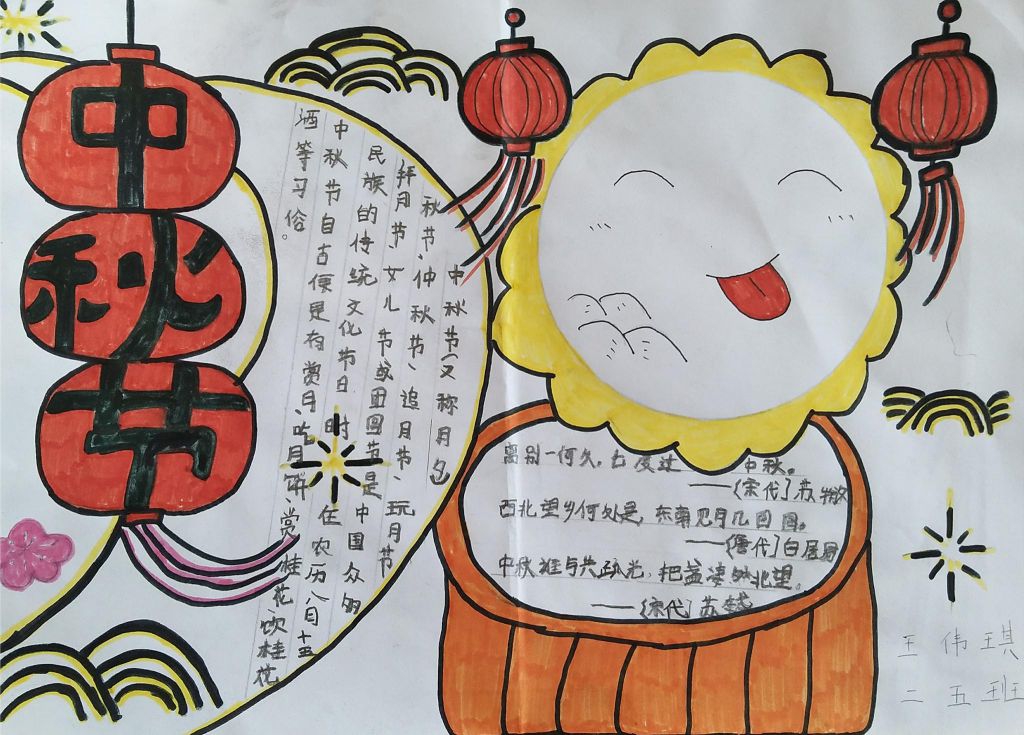 中
秋
节
中秋节(又称月夕
秋节、仲秋节、追月节、玩月节
拜月节、女儿节或团圆节是中国众多
民族的传统文化节日,时在农历八月十五
中秋节自古便是有赏月、吃月饼、赏桂花、饮桂花
酒等习俗。
离别一何久,七度过中秋。
——[宋代]苏辙
西北望乡何处是,东南见月几回圆。
——[唐代]白居易
中秋谁与共孤光,把盏凄然北望。
——[宋代]苏
王伟琪
二五班